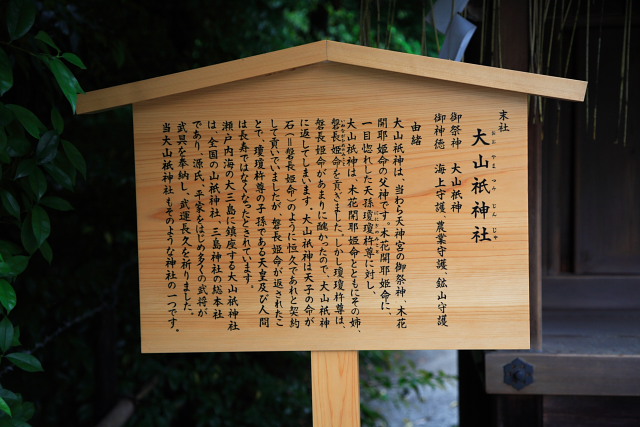 末社
大山祇神社
おおやまつみじんじゃ
御祭神　大山祇神
御神徳　海上守護、農業守護、鉱山守護
由緒
大山祇神は、当わら天神宮の御祭神、木花
開耶姫命の父神です。木花開耶姫命に、
一目惚れした天孫瓊瓊杵尊に対し、
大山祇神は、木花開耶姫命とともにその姉、
磐長姫命を貢ぎました。しかし瓊瓊杵尊は、
磐長姫命があまりに醜かったので、大山祇神
に返してしまいます。大山祇神は天子の命が
石（＝磐長姫命）のように恒久であれと契約
して貢いでいましたが、磐長姫命が返されたこ
とで、瓊瓊杵尊の子孫である天皇及び人間
は長寿ではなくなったとされています。
瀬戸内海の大三島に鎮座する大山祇神社
は、全国の山祇神社、三島神社の総本社
であり、源氏、平家をはじめ多くの武将が
武具を奉納し、武運長久を祈りました。
当大山祇神社もそのような神社の一つです。